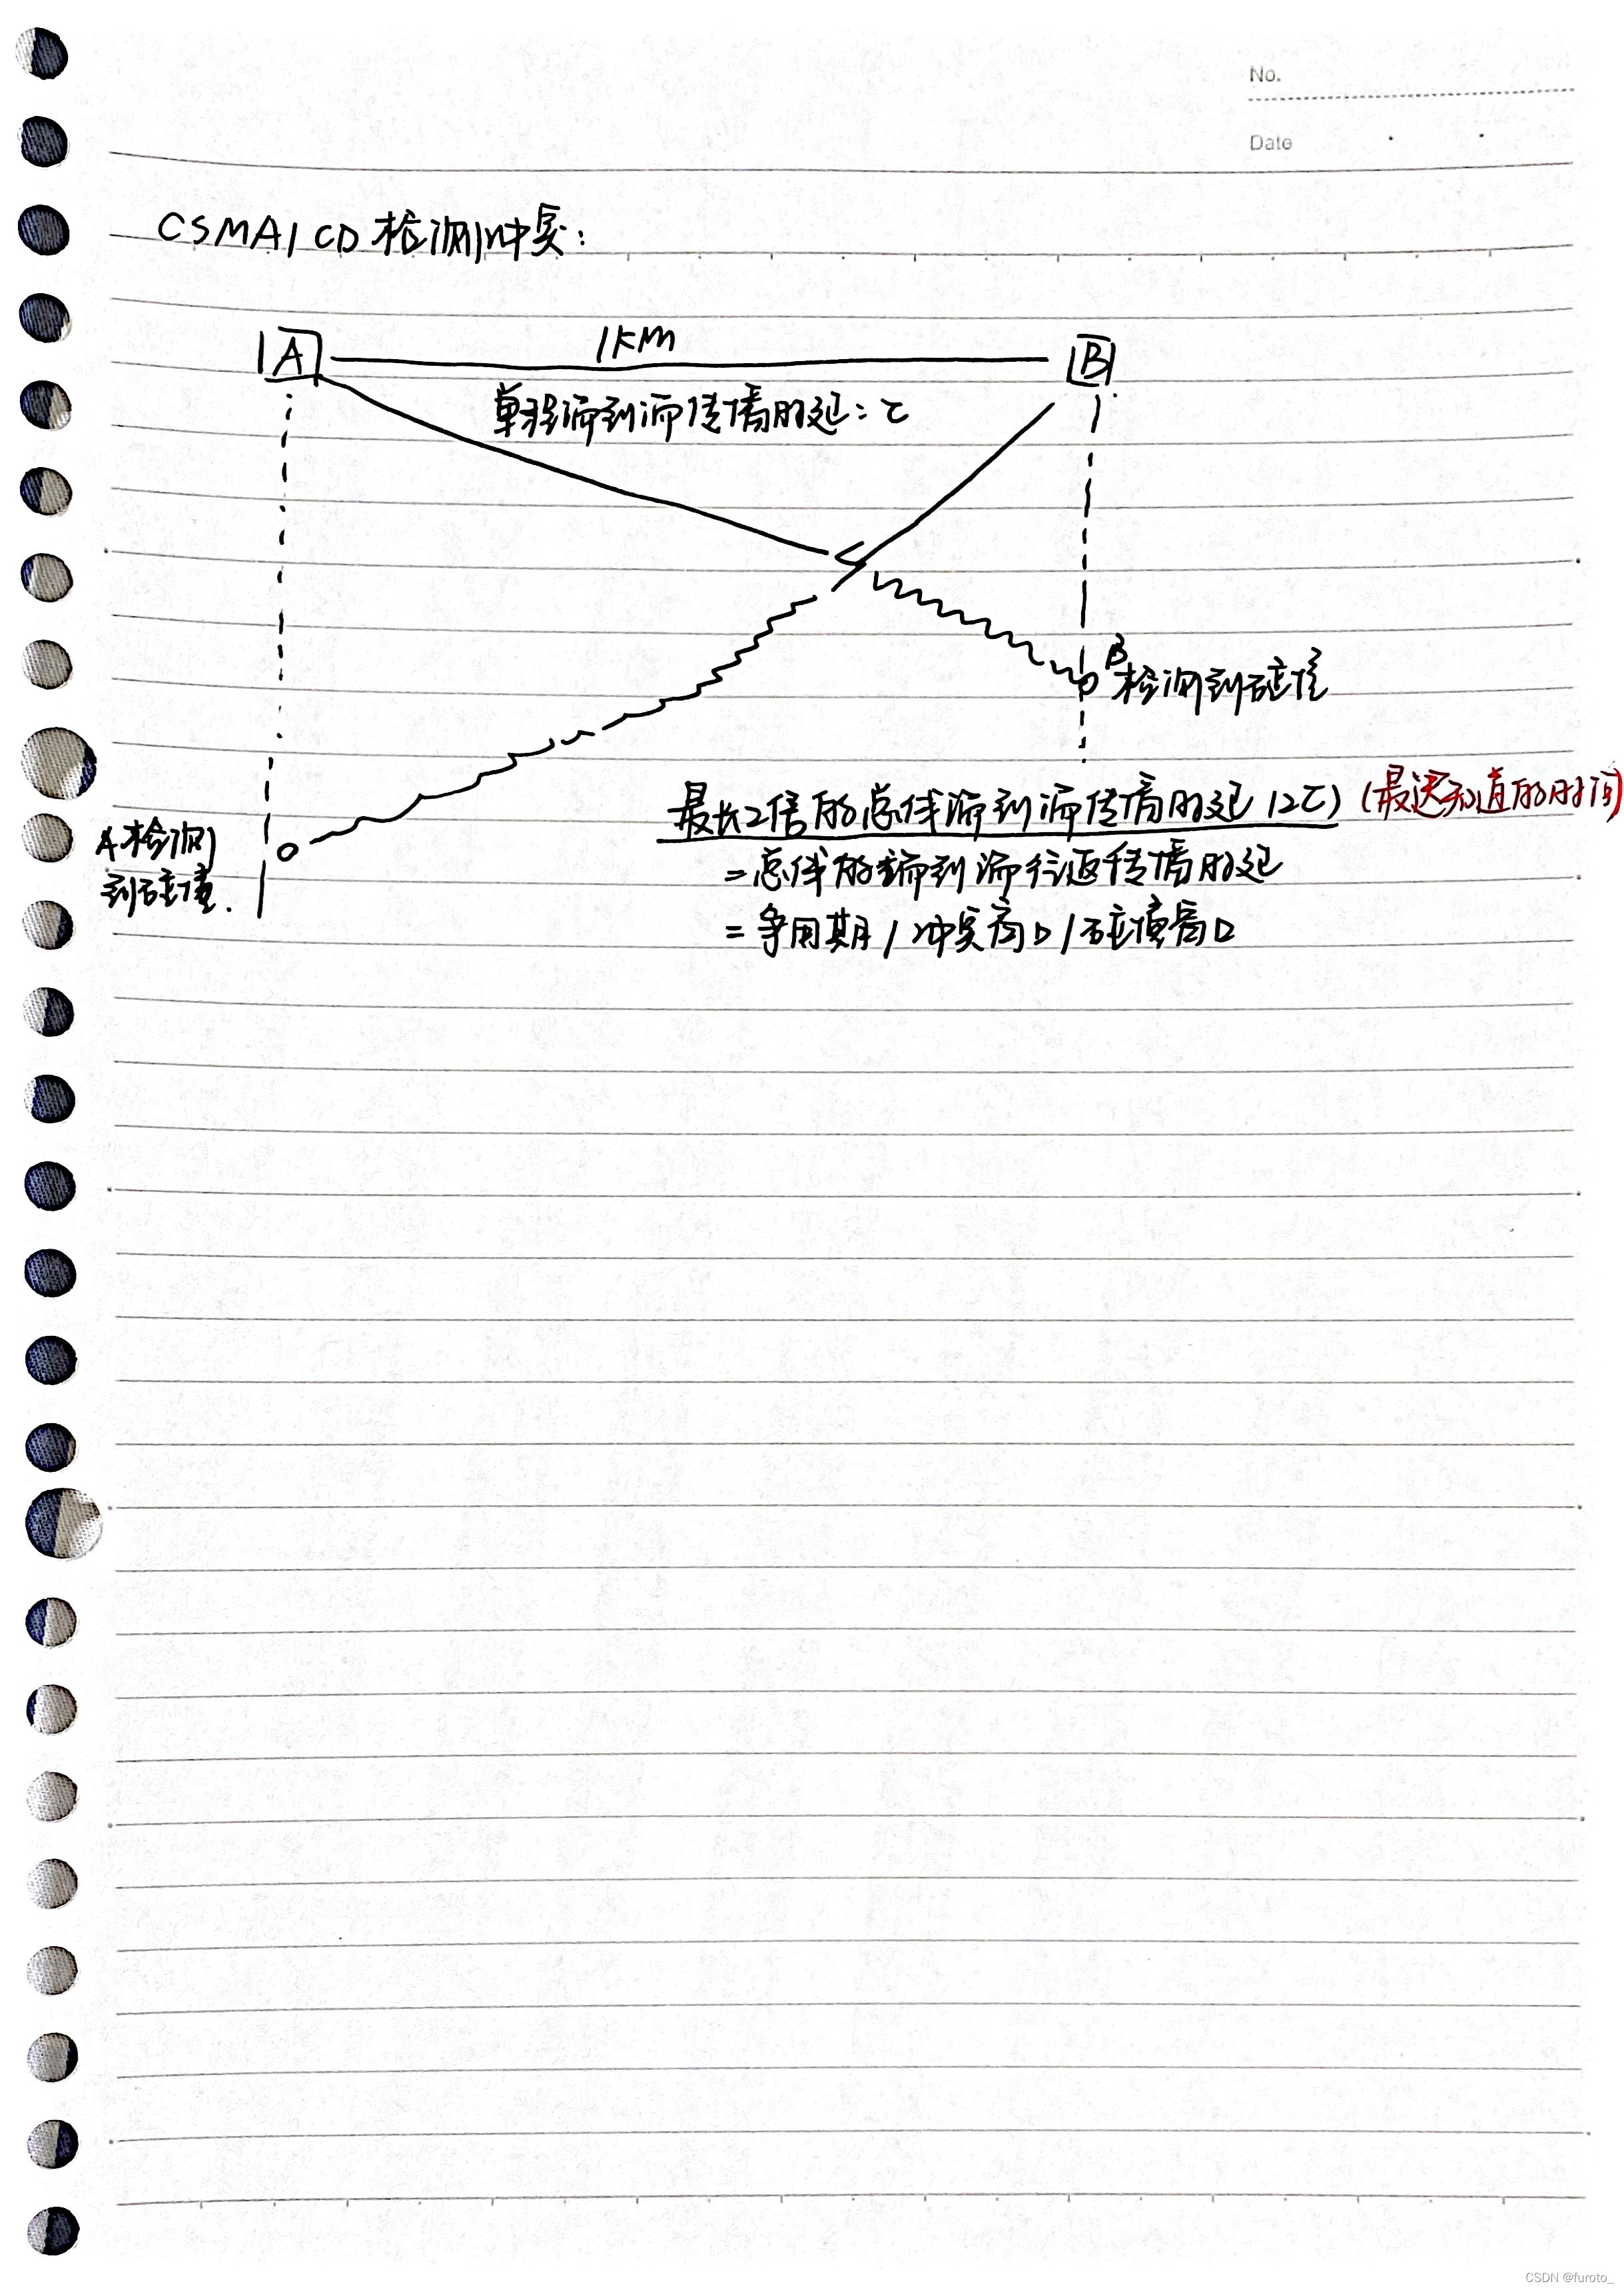 No.
Date
CSMA/CD 检测冲突:
A
1KM
B
单程端到端传播时延:τ
B
检测到碰撞
最长2倍的总线端到端传播时延(2τ) (最迟知道的时间)
A检测
到碰撞.
=总线的端到端往返传播时延
=争用期/冲突窗口/碰撞窗口
CSDN @furoto_